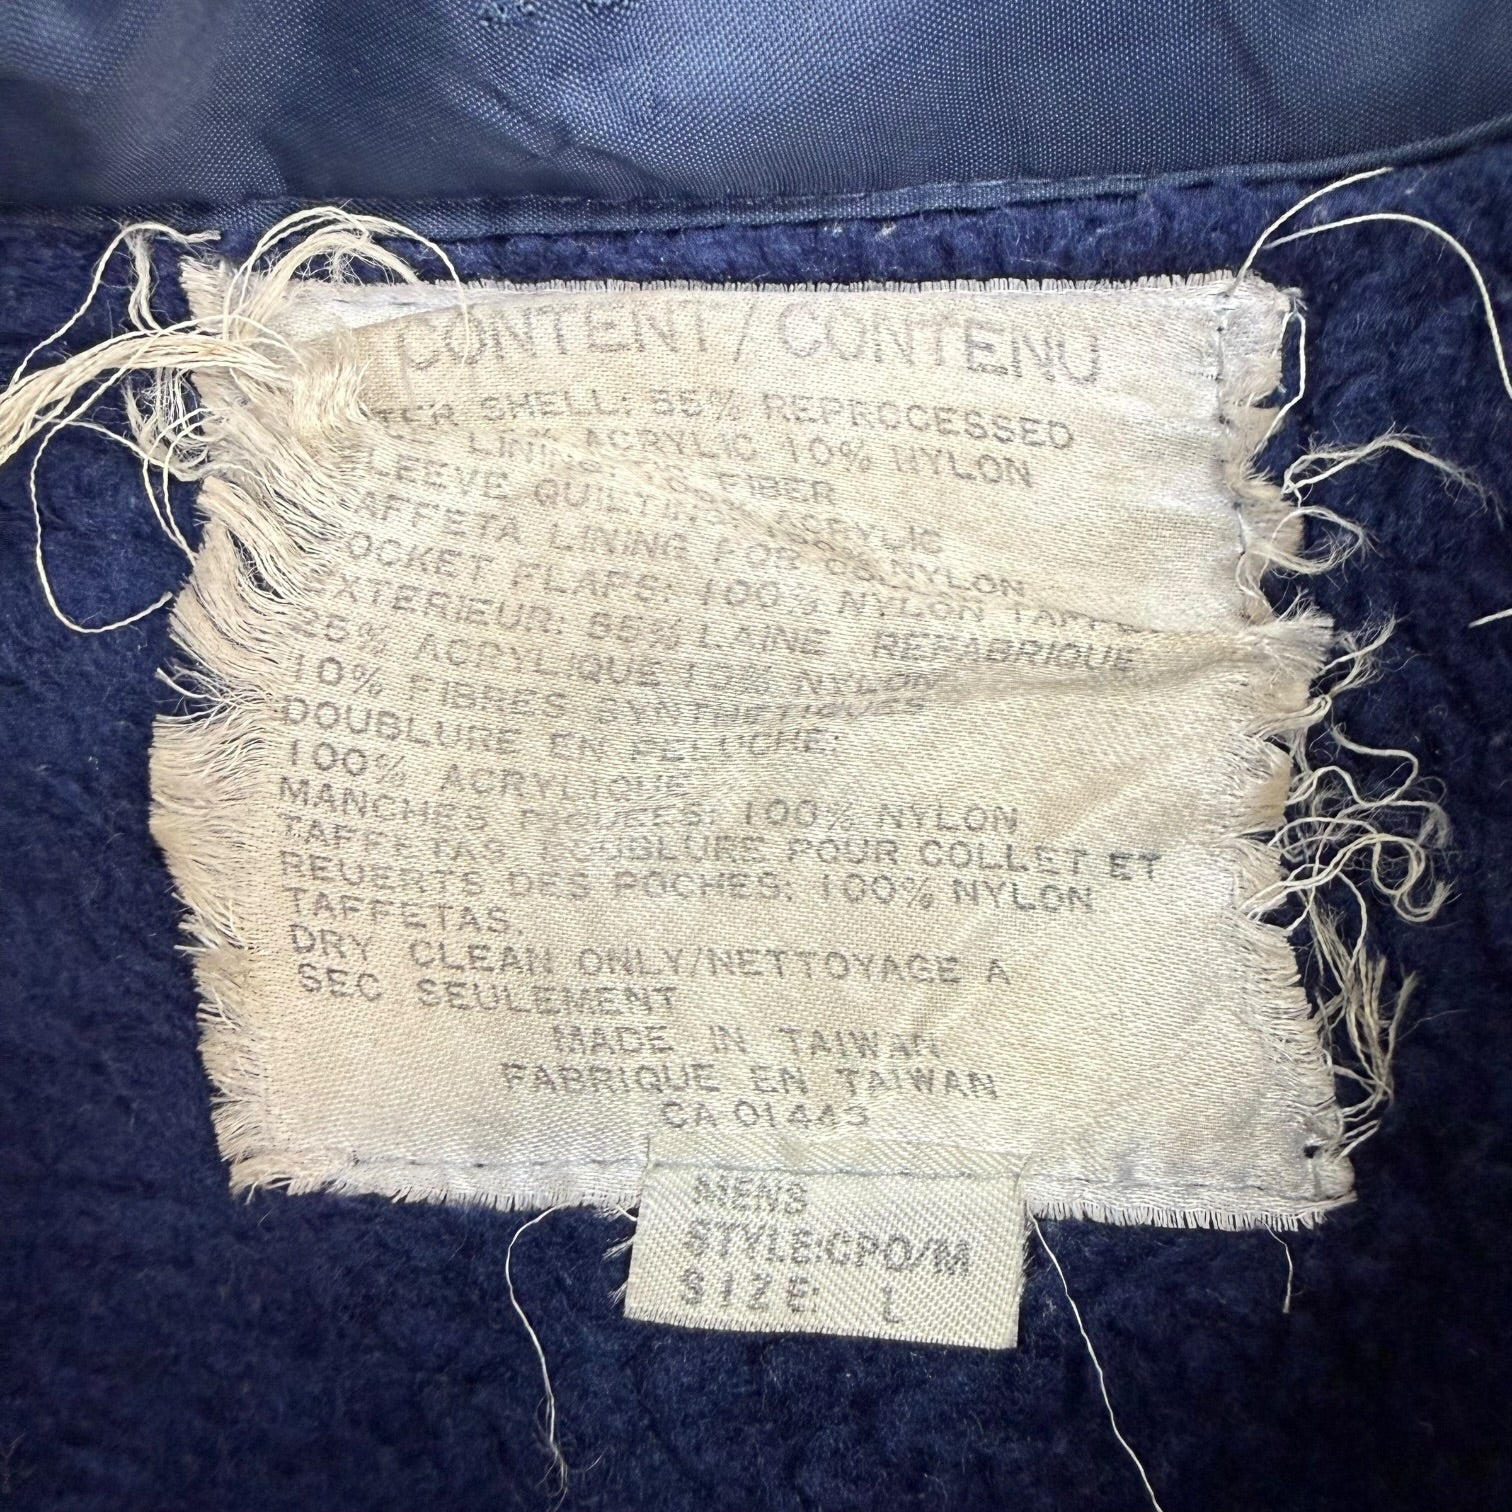 CONTENT/CONTENU
TER SHELL: 55% REPROCESSED
LINING: ACRYLIC 10% NYLON
FIBER
LEEVE QUILTING: ACRYLIC
AFFETA LINING FOR NYLON
OCKET FLAPS: 100% NYLON
EXTERIEUR: 55% LAINE REFABRIQUE
25% ACRYLIQUE 10% NYLON
10% FIBRES SYNTHETIQUES
DOUBLURE EN PELUCHE:
100% ACRYLIQUE
MANCHES PIQUEES: 100% NYLON
TAFFETAS DOUBLURE POUR COLLET ET
REUERTS DES POCHES: 100% NYLON
TAFFETAS.
DRY CLEAN ONLY/NETTOYAGE A
SEC SEULEMENT
MADE IN TAIWAN
FABRIQUE EN TAIWAN
CA 01443
MENS
STYLE:CPO/M
SIZE: L